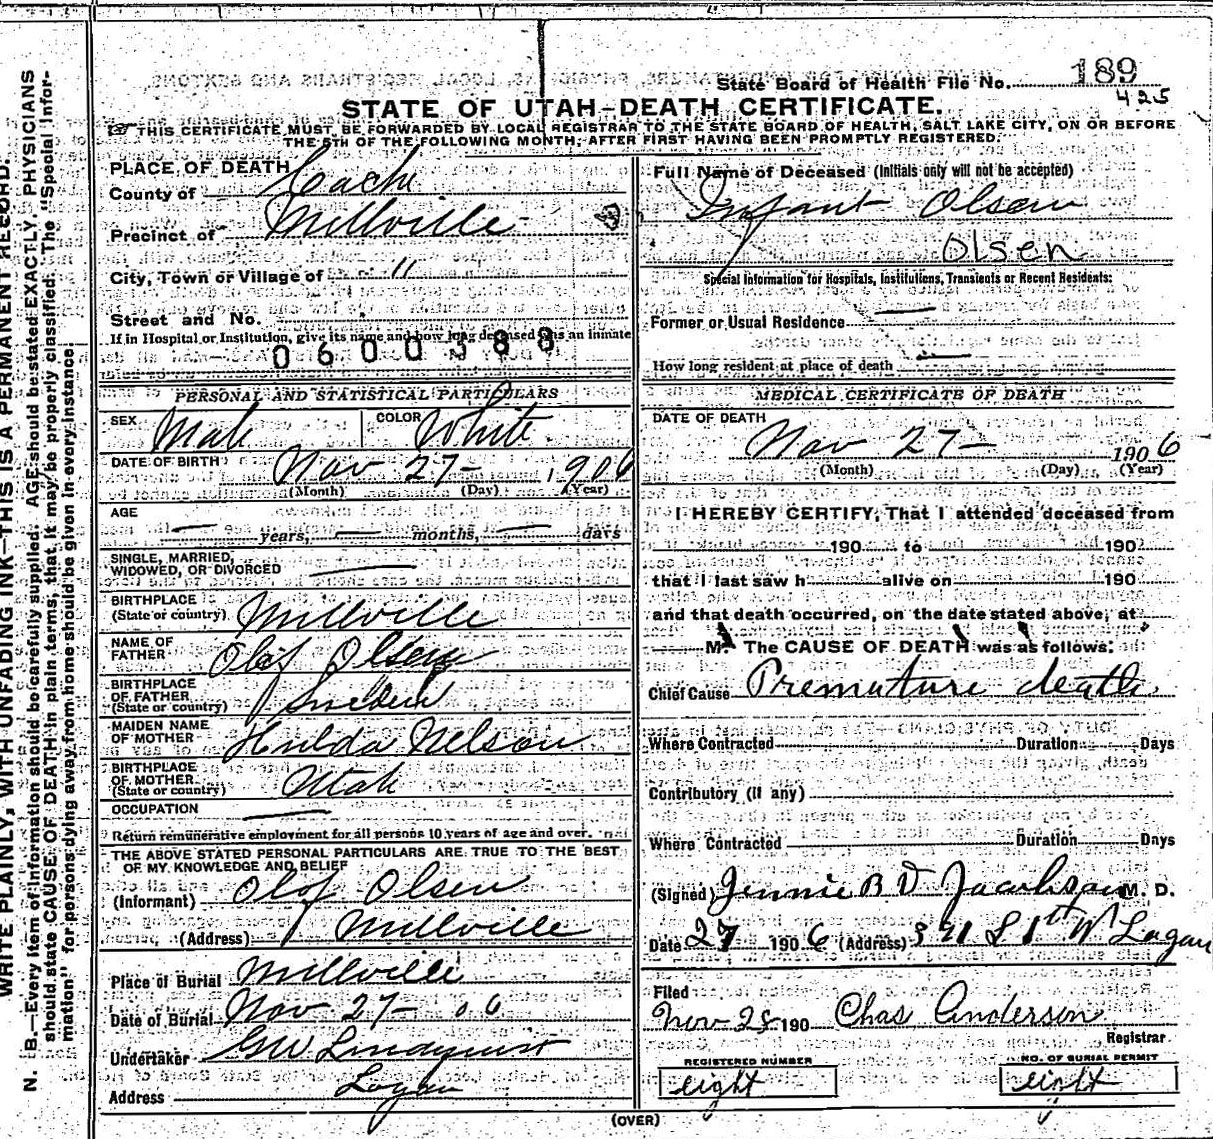 State Board of Health File No. 189
425
STATE OF UTAH-DEATH CERTIFICATE.
THIS CERTIFICATE MUST BE FORWARDED BY LOCAL REGISTRAR TO THE STATE BOARD OF HEALTH, SALT LAKE CITY, ON OR BEFORE
THE 5TH OF THE FOLLOWING MONTH, AFTER FIRST HAVING BEEN PROMPTLY REGISTERED.
WRITE PLAINLY, WITH UNFADING INK—THIS IS A PERMANENT RECORD.
N. B.—Every item of information should be carefully supplied. AGE should be stated EXACTLY. PHYSICIANS
should state CAUSE OF DEATH in plain terms, that it may be properly classified. The "Special Infor-
mation" for persons dying away from home should be given in every instance
PLACE OF DEATH
County of Cache
Precinct of Millville
City, Town or Village of "
Street and No.
If in Hospital or Institution, give its name and how long deceased was an inmate
0600388
PERSONAL AND STATISTICAL PARTICULARS
SEX Male COLOR White
DATE OF BIRTH Nov 27- 1906
(Month) (Day) (Year)
AGE
— years, — months, — days
SINGLE, MARRIED,
WIDOWED, OR DIVORCED —
BIRTHPLACE
(State or country) Millville
NAME OF
FATHER Olof Olsen
BIRTHPLACE
OF FATHER
(State or country) Sweden
MAIDEN NAME
OF MOTHER Hulda Nelson
BIRTHPLACE
OF MOTHER
(State or country) Utah
OCCUPATION —
Return remunerative employment for all persons 10 years of age and over.
THE ABOVE STATED PERSONAL PARTICULARS ARE TRUE TO THE BEST
OF MY KNOWLEDGE AND BELIEF
(Informant) Olof Olsen
(Address) Millville
Place of Burial Millville
Date of Burial Nov 27- 06
Undertaker GW. Lindquist
Address Logan
Full Name of Deceased (Initials only will not be accepted)
Infant Olsen
Olsen
Special Information for Hospitals, Institutions, Transients or Recent Residents:
Former or Usual Residence —
How long resident at place of death —
MEDICAL CERTIFICATE OF DEATH
DATE OF DEATH
Nov 27- 1906
(Month) (Day) (Year)
I HEREBY CERTIFY, That I attended deceased from
190 to 190
that I last saw h alive on 190
and that death occurred, on the date stated above, at
M. The CAUSE OF DEATH was as follows:
Chief Cause Premature death
Where Contracted Duration Days
Contributory (if any)
Where Contracted Duration Days
(Signed) Jennie B D Jacobson M. D.
Date 27 1906 (Address) S 1st W Logan
Filed
Nov 28 190 Chas Anderson
Registrar
REGISTERED NUMBER
eight
NO. OF BURIAL PERMIT
eight
(OVER)